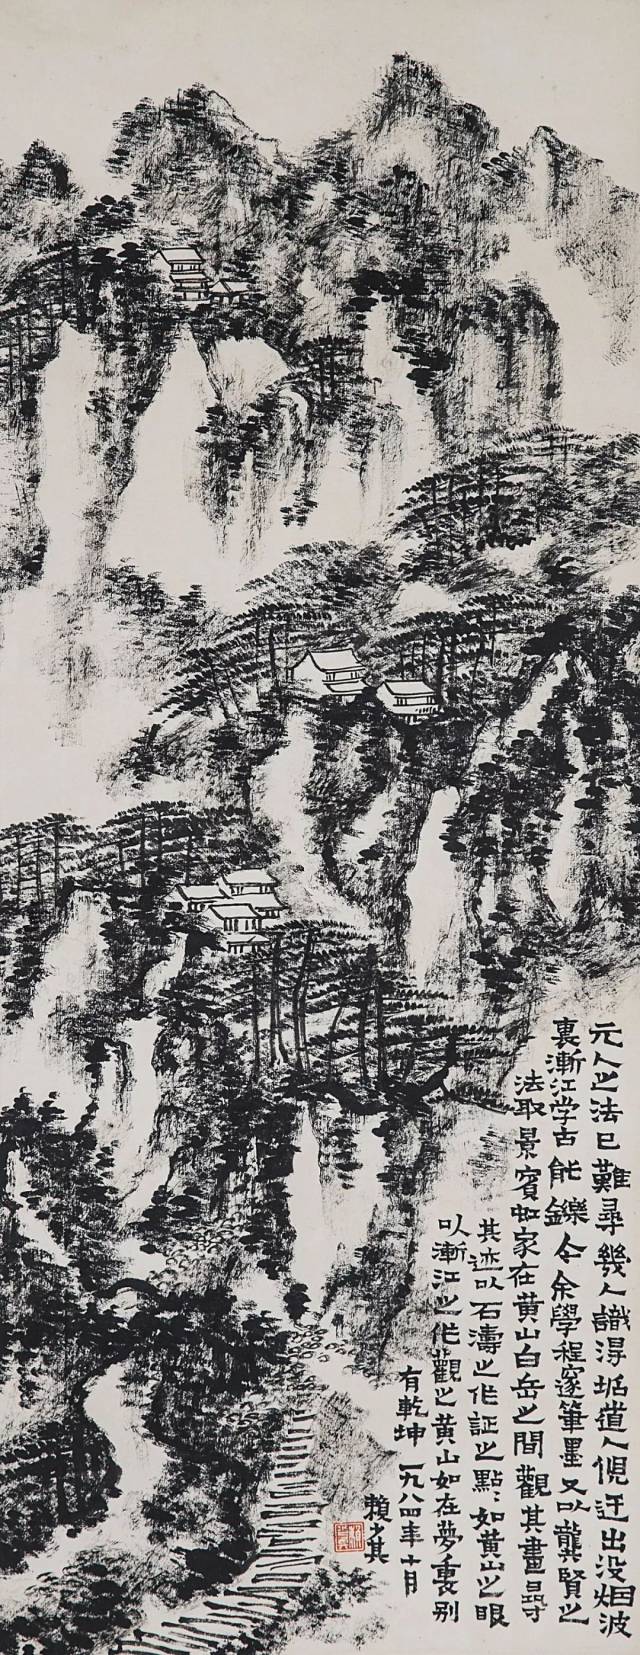 元人之法已難尋幾人識得垢道人倪迂出没烟波
裏漸江学古能鑠今余學程邃筆墨又以龔賢之
法取景賓虹家在黄山白岳之間觀其畫尋
其迹以石濤之作証之點點如黄山之眼
以漸江之作觀之黄山如在夢裏别
有乾坤 一九八四年十月
賴少其